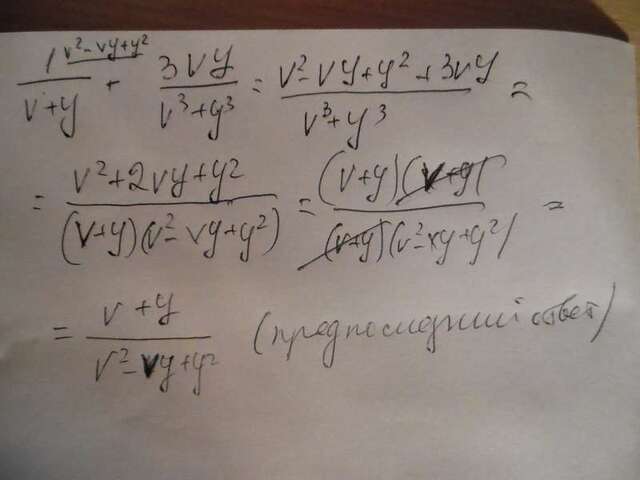 1^{v²-vy+y²}/(v+y) + 3vy/(v³+y³) = (v²-vy+y²+3vy)/(v³+y³) =
= (v²+2vy+y²)/((v+y)(v²-vy+y²)) = (v+y)(v+y)/((v+y)(v²-xy+y²)) =
= (v+y)/(v²-vy+y²) (предпоследний ответ)